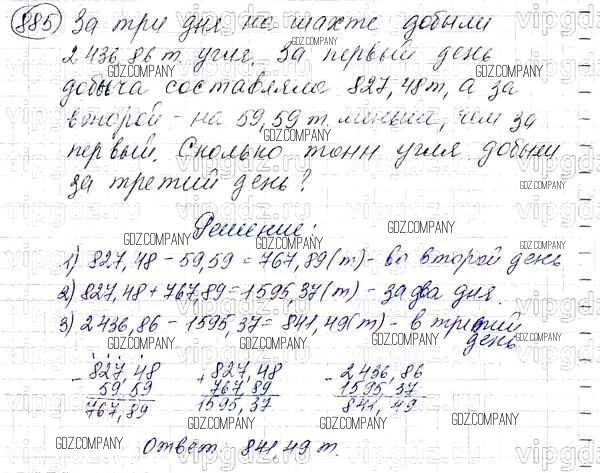 885) За три дня на шахте добыли
2 436,86 т. угля. За первый день
добыча составляла 827,48 т, а за
второй - на 59,59 т. меньше, чем за
первый. Сколько тонн угля добыли
за третий день?
Решение:
1) 827,48 - 59,59 = 767,89 (т) - во второй день
2) 827,48 + 767,89 = 1595,37 (т) - за два дня.
3) 2 436,86 - 1595,37 = 841,49 (т) - в третий
день
- 827,48 + 827,48 - 2 436,86
59,59 767,89 1595,37
767,89 1595,37 841,49
Ответ: 841,49 т.
GDZ.COMPANY
vipgdz.ru